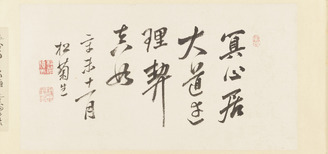 冥心居
大道玄
理契
真如
辛未十一月
松菊生